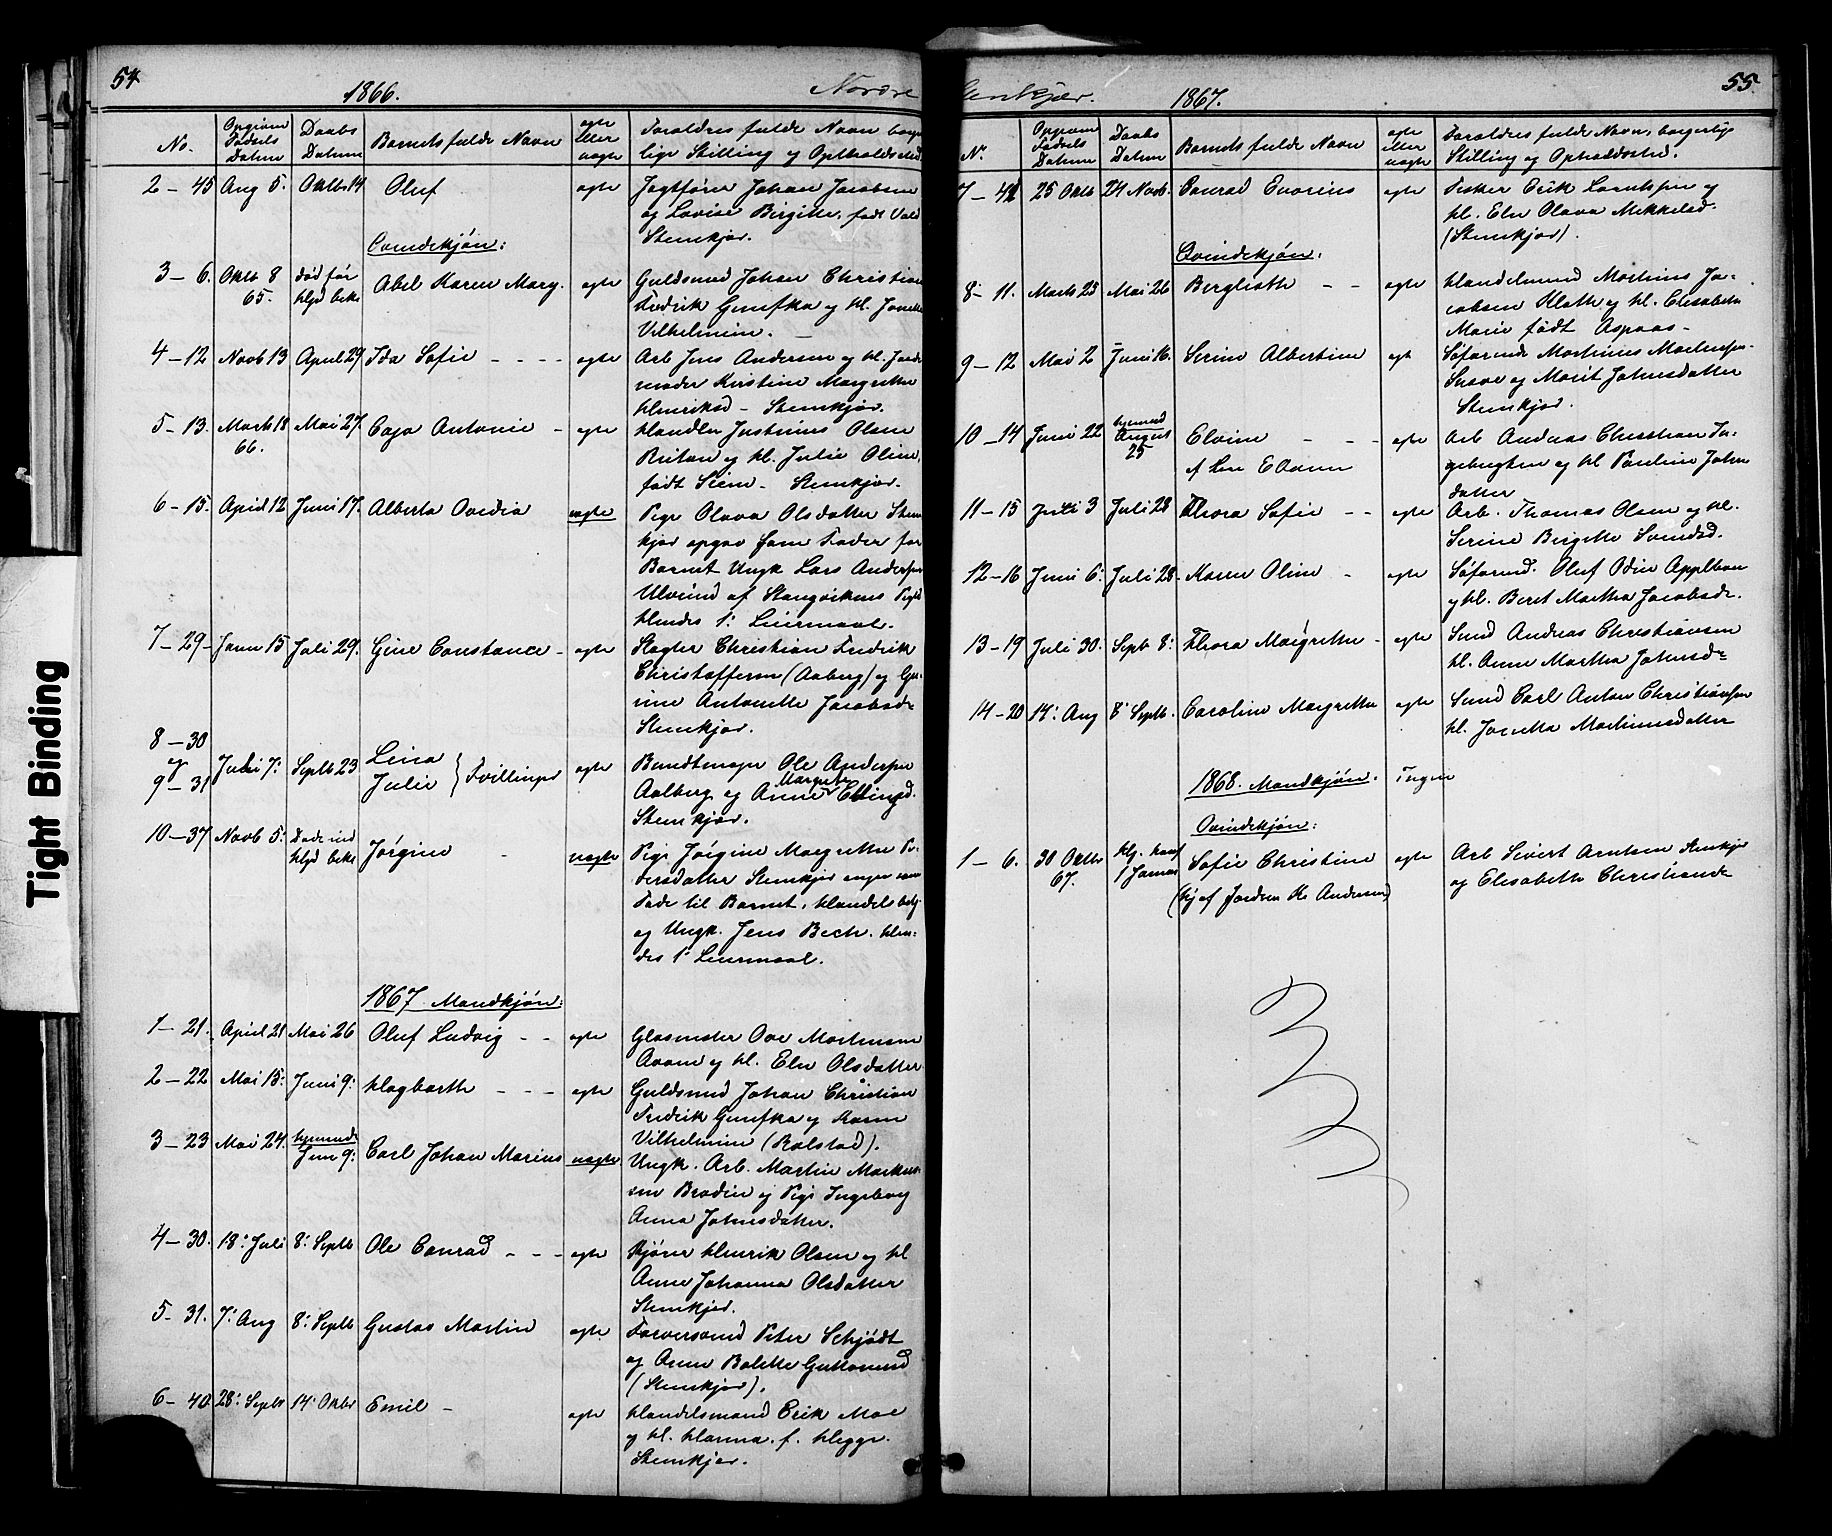 54
1866.
Nordre
No.
Opgiven Fødsels Datum
Daabs Datum
Barnets fulde Navn
ægte eller uægte
Foreldres fulde Navn borger-
lige Stilling og Opholdssted
2 – 45 Aug 5. Oktb 14 Oluf ægte Jagtfører Johan Jacobsen
og Lovise Birgitte, født Vold
Stenkjær.
Qvindekjøn:
3 – 6. Oktb 8 65. død før Abel Karen Marg. ægte Guldsmed Johan Christian
Fredrik og hl.
Vilhelmine. –
4 – 12 Novb 13 April 29 Ida Sofie – – – – ægte Arb Jens Andersen og hl. Jorde
moder Kirstine Margrethe
Henriksd – Stenkjær.
5 – 13. Marts 18 66. Mai 27. Caja Antonie – ægte Handler Justinus Olsen
og hl. Julie Oline,
født Stene – Stenkjær.
6 – 15. April 12 Juni 17. Alberta Ovedia uægte Pige Olava Olsdatter Sten
kjær opgav som Fader for
Barnet Ungk Lars Andersen
Ulvind af Stangvikens Pgld
Hendes 1: Leiermaal.
7 – 29 – Janr 15 Juli 29. Gine Constance – ægte Slagter Christian Fredrik
Christoffersen (Aaberg) og Gu-
rine Antonette Jacobsdr
Stenkjær.
8 – 30
og
9 – 31 Juli 7: Septb 23 Lina
Julie } Tvillinger ægte Bundtmager Ole Andersen
Aalberg og Anne Margrete Ellingsd.
Stenkjær.
10 – 37 Novb 5: Jørgine – uægte Pige Jørgine Margrethe Pe-
dersdatter Stenkjær angav som
Fader til Barnet, Handelsbetj
og Ungk. Jens Bech. Hen-
des 1: Leiermaal.
1867 Mandkjøn:
1 – 21. April 21 Mai 26 Oluf Ludvig – – ægte Glasmester Ove Mortensen
og hl. Elen Olsdatter
2 – 22 Mai 15: Juni 9: Hagbarth – – – ægte Guldsmed Johan Christian
Fredrik og Karen
Vilhelmine (Rolstad).
3 – 23 Mai 24. hjemmed Juni 9: Carl Johan Marius uægte Ungk. Arb. Martin Markus-
sen og Pige Ingeborg
Anna Johnsdatter.
4 – 30. 18: Juli 8: Septb Ole Conrad – – – ægte Henrik Olsen og hl
Anne Johanna Olsdatter
Stenkjær.
5 – 31. 7: Aug 8: Septb Gustav Martin ægte Farversvend Peter Schjødt
og Anne Bolette Guttormsd
(Stenkjær).
6 – 40 28: Septbr 14: Oktbr Emil – ægte Handelsmand Erik Moe
og hl. Hanna. f. Hegge.
Stenkjær.
Stenkjær.
1867.
55.
N.
Opgiven Fødsels Datum
Daabs Datum
Barnets fulde Navn
ægte eller uægte
Foreldres fulde Navn, borgerlige
Stilling og Opholdssted.
7 – 41 25 Oktb 24 Novb. Conrad Evarius ægte Fisker Erik Larntsen og
hl. Elen Olava Mikkelsd.
(Stenkjær).
Qvindekjøn:
8 – 11. Marts 23 Mai 26 Bergliotha – – ægte Handelsmand Martinus Ja-
cobsen Klath og hl. Elisabeth
Marie født Aspaas –
9 – 12 Mai 2 Juni 16. Serine Albertine ægt Søfarende Martinus Mortensen
og Marit Johnsdatter
Stenkjær.
10 – 14 Juni 22 hjemmed August 25 Elvine – – – ægte Arb Andreas Christian In-
gebrigtsen og hl Pauline John
datter
11 – 15 Juli 3 Juli 28 Thora Sofie – – ægte Arb. Thomas Olsen og hl.
Serine Birgitte Svendsd.
12 – 16 Juni 6: Juli 28 – Karen Oline – ægte Søfarend. Oluf Odin Appelbom
og hl. Beret Martha Jacobsdr.
13 – 19 Juli 30. Septb 8: Thora Margrethe – ægte Smed Andreas Christiansen
hl. Anne Martha Johnsdr
14 – 20 14: Aug 8: Septb. Caroline Margrethe ægte Smed Carl Anton Christiansen
hl. Jonetta Martinusdatter
1868. Mandkjøn: Ingen
Qvindekjøn:
1 – 6. 30 Oktbr 67. 1 Januar Sofie Christine ægte Arb Sivert Arntsen Stenkjær
og Elisabeth Christiansdr
(hj af Jordem Andersen)
Tight Binding